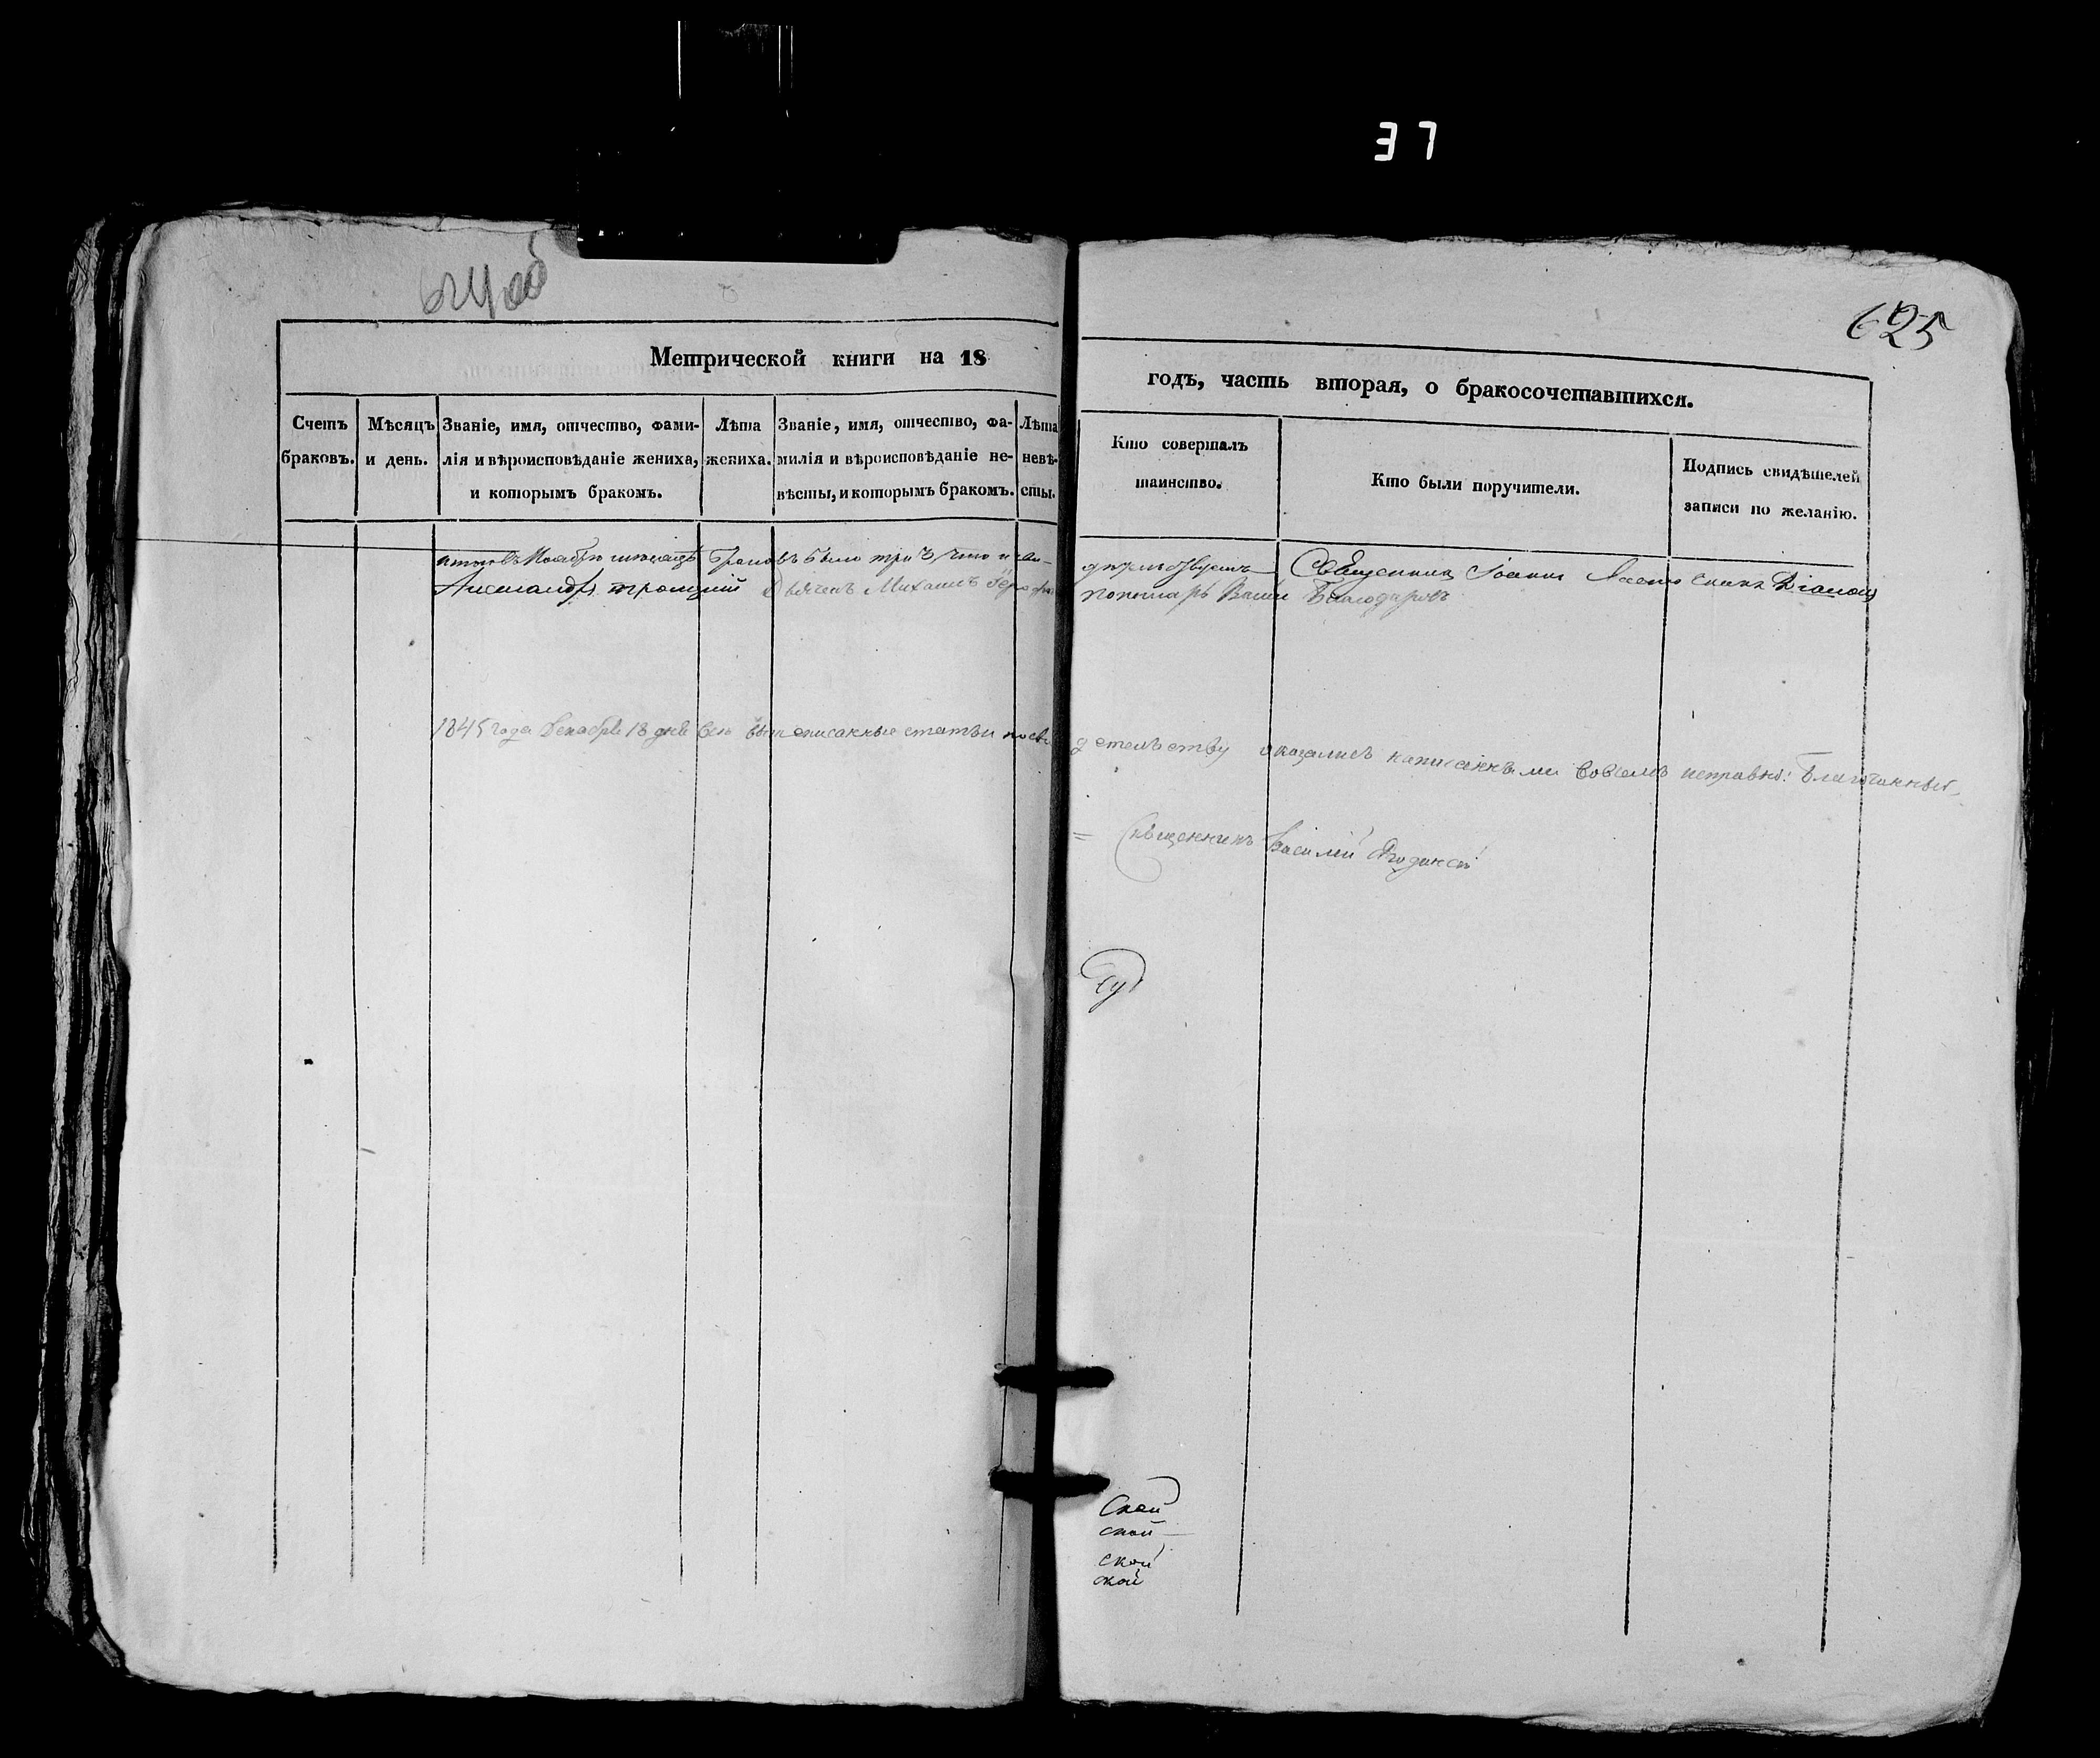 37
624об
625
Метрической книги на 18 годъ, часть вторая, о бракосочетавшихся.
Счетъ браковъ.
Мѣсяцъ и день.
Званіе, имя, отчество, фами-
лія и вѣроисповѣданіе жениха,
и которымъ бракомъ.
Лѣта
жениха.
Званіе, имя, отчество, фа-
милія и вѣроисповѣданіе не-
вѣсты, и которымъ бракомъ.
Лѣта
невѣ-
сты.
Кто совершалъ
таинство.
Кто были поручители.
Подпись свидѣтелей
записи по желанію.
Браковъ было три 3, что и сви- Священникъ Іоаннъ
троицкій Дьячекъ Михаилъ пономарь Благодаровъ
1845 года Декабря 18 дня выше писанные статьи по сви детельству оказались написанными во всемъ исправно: Благочинный
= Священникъ Василій
ской
ской
ской
ской